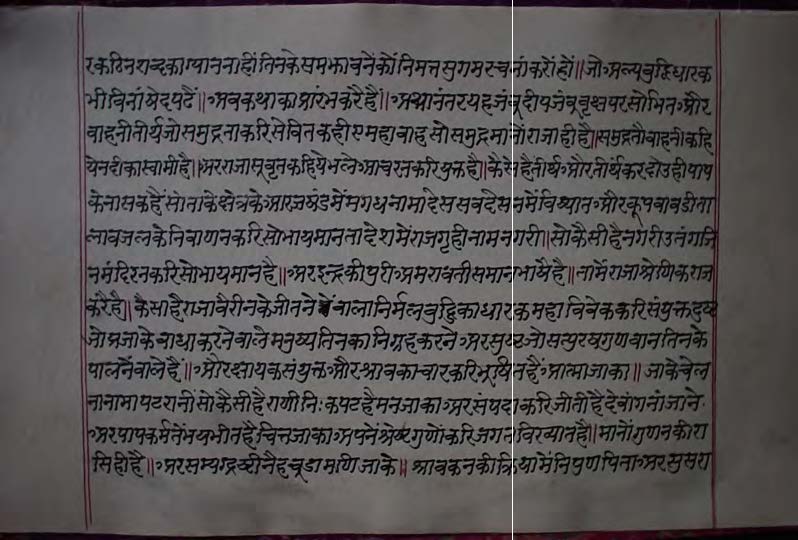 रकठिनशब्दकाग्याननाहींतिनकेसमझावनेंकौंनिमत्तसुगमरचनांकरोंहों॥जोअल्पबुद्धिधारक
भीविनांखेदपढैं॥अबकथाकाप्रारंभकरैहैं॥अथानंतरयहजंबूदीपजंबूवृक्षपरसोभितऔर
वाहनीतीर्थजोसमुद्रताकरिसेवितकहीएमहाबाहुसोसमुद्रमानोंराजाहीहै॥समुद्रतौवाहनीकहि
येनदीकास्वामीहै॥अरराजासुवृतकहियेभलेआचरनकरियुक्तहै॥कैसेहैतीर्थऔरतीर्थकरदोउहीपाप
केनासकहैंसोताकेक्षेत्रकेआरजखंडमेंमगधनामादेससबदेसनमेंविख्यातऔरकूपबावडीता
लावजलकेनिवाणनकरिसोभायमानतादेशमेंराजगृहीनामनगरी॥सोकैसीहैनगरीउतंगजि
नमंदिरनकरिसोभायमानहै॥अरइन्द्रकीपुरीअमरावतीसमानभायैहै॥तामेंराजाश्रेणिकराज
करैहै॥कैसाहैराजावैरीनकेजीतनेवालानिर्मलबुद्धिकाधारकमहाविवेककरिसंयुक्तदुष्ट
जोप्रजाकेबाधाकरनेवालेमनुष्यतिनकानिग्रहकरनेअरसुष्टजोसत्पुरषगुणवानतिनके
पालनैंवालेहैं॥औरक्षायकसंयुक्तऔरश्रावकाचारकरिभूषितहैंआत्माजाका॥जाकेचेल
नानामापटरानींसोकैसीहैराणीनिःकपटहैमनजाकाअरसंपदाकरिजीतीहैदेवांगनांजाने
अरपापकर्मनेंभयभीतहैचित्तजाकाअपनेंश्रेष्टगुणोंकरिजगतविख्यातहै॥मानोंगुणनकीरा
सिहीहै॥अरसम्यग्द्रष्टीनैहचूडामणिजाके॥श्रावकनकीक्रियामेंनिपुणपिताअरसुसरा